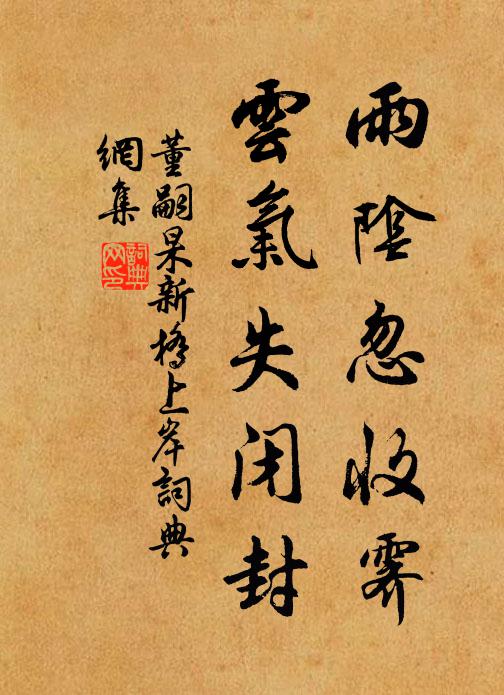 雨陰忽收霽
雲氣失閉封
董嗣杲新橋上岸詞典
網集
詞典網印